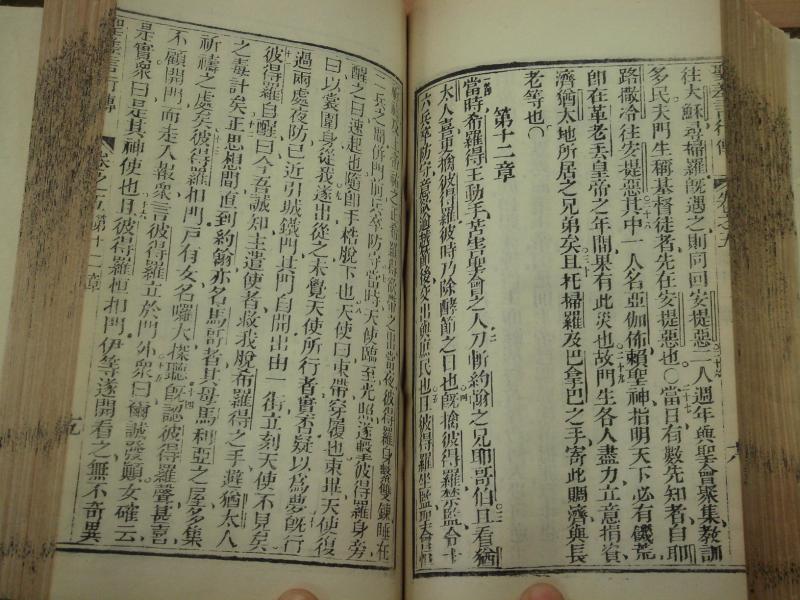 往大蘇尋掃羅旣遇之則同回安提惡二人週年與聖會聚集教訓
多民夫門生稱基督徒者先在安提惡也○當日有數先知者自耶
路撒冷往安提惡其中一人名亞伽佈賴聖神指明天下必有饑荒
卽在革老丟皇帝之年間果有此災也故門生各人盡力立意捐資
濟猶太地所居之兄弟矣且托掃羅及巴拿巴之手寄此賙濟與長
老等也○
第十二章
當時希羅得王動手苦害聖會之人刀斬約翰之兄耶哥伯且看猶
太人喜更擒彼得羅彼時乃除酵節之日也旣擒彼得羅禁監令十
六兵卒防守意欲逾越節後交出與庶民也且彼得羅坐監聖會
二兵之間併門前兵卒防守當時天使臨至光照遂擊彼得羅身旁
醒之曰速起也隨卽手梏脫下也天使曰束帶穿履也束畢天使復
曰以裳圍身從我遂出從之未覺天使所行者實否疑以為夢旣行
過兩處夜防已近引城鐵門其門自開出由一街立刻天使不見矣
彼得羅自醒曰今吾誠知主遣使者救我脫希羅得之手薙猶太人
之毒計矣正思想間直到約翰亦名馬可者其母馬利亞之屋多集
祈禱之處矣彼得羅扣門戶有女名囉大探聽旣認彼得羅聲甚喜
不顧開門而走入報衆言彼得羅立於門外衆曰爾誠發顛女確云
是實衆曰是其神使也且彼得羅恒扣門伊等遂開看之無不奇異
卷之五 第十二章